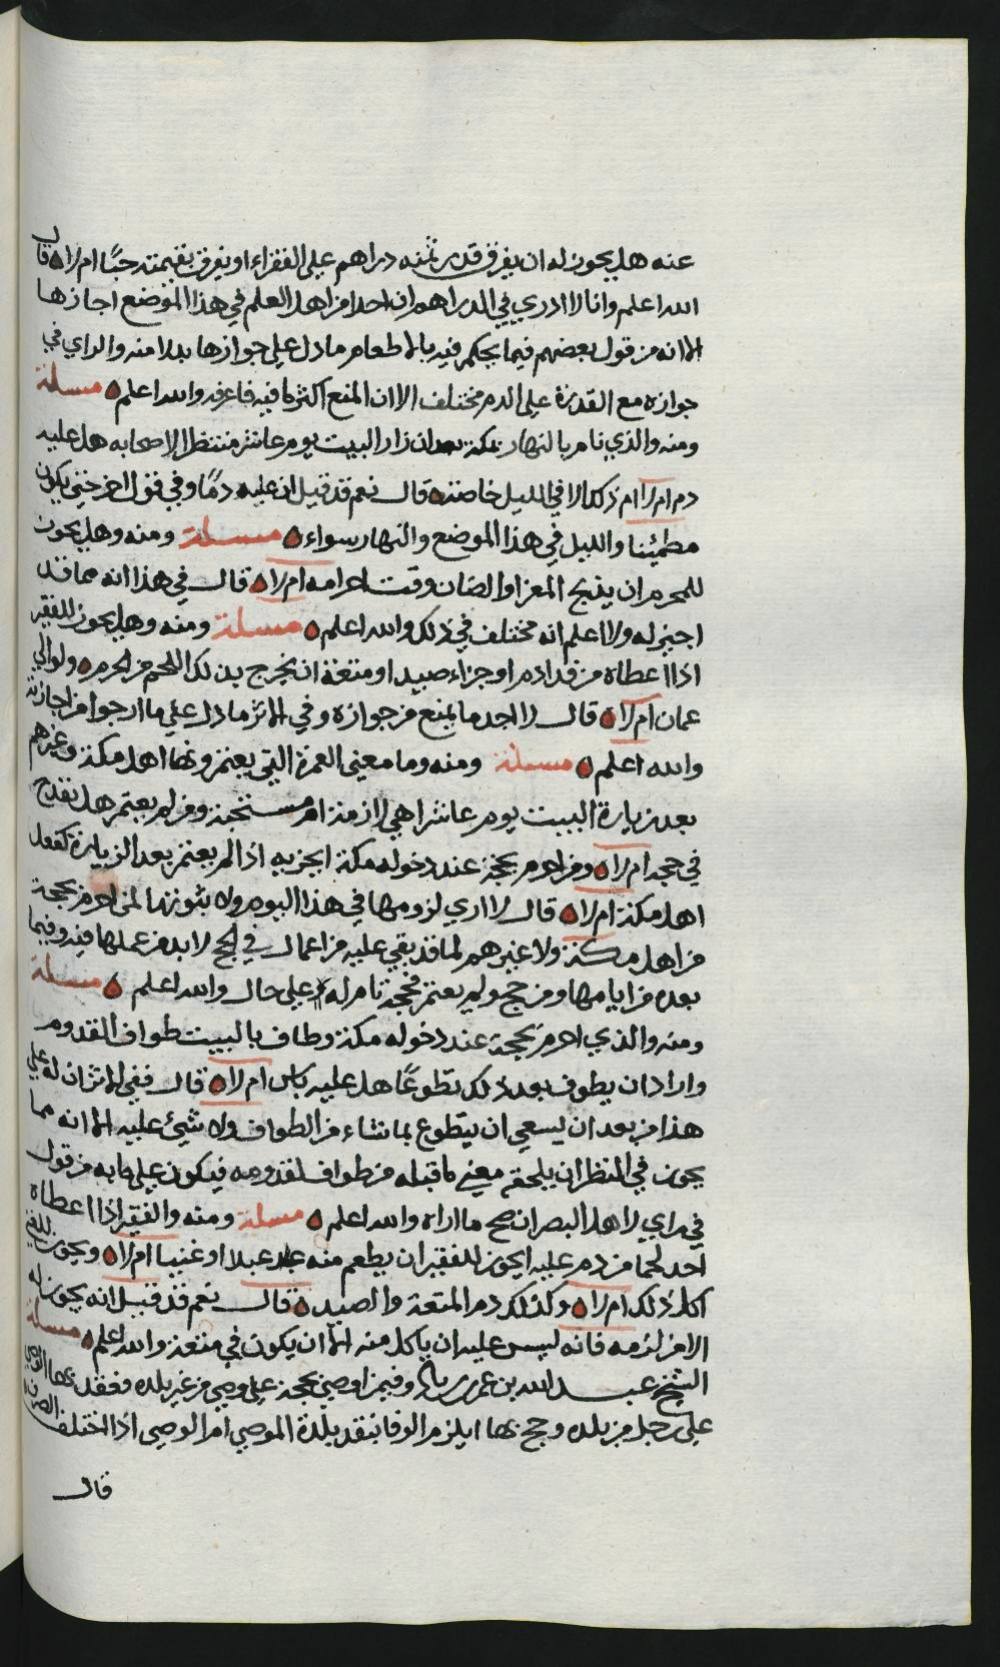 عنه هل يجوز له ان يفرق قدر ثمنه دراهم علي الفقراء او يفرق بقيمته حبًا ام لا قال
الله اعلم وانا لا ادري في الدراهم ان احدا من اهل العلم في هذا الموضع اجازها
الا انه من قول بعضهم فيما يحكم فيه بالاطعام ما دل علي جوازها بدلا منه والراي في
جوازه مع القدرة علي الدم مختلف الا ان المنع اكثر ما فيه فاعرفه والله اعلم مسئلة
ومنه والذي نام بالنهار بمكة بعد ان زار البيت يوم عاشر منتظرا لاصحابه هل عليه
دم ام لا ام ذلك الا في الليل خاصة قال نعم قد قيل ان عليه دمًا وفي قول اخر حتى يكون
مطمئنا والليل في هذا الموضع والنهار سواء مسئلة ومنه وهل يجوز
للمحرم ان يذبح المعز او الضان وقت احرامه ام لا قال في هذا انه مما قد
اجيز له ولا اعلم انه مختلف في ذلك والله اعلم مسئلة ومنه وهل يجوز للفقير
اذا اعطاه من فدا دم او جزاء صيد او متعة ان يخرج بذلك اللحم من الحرم ولو الي
عمان ام لا قال لا اجد ما يمنع من جوازه وفي الاثر ما دل علي ما ارجوا من اجازته
والله اعلم مسئلة ومنه وما معنى العمرة التي يعتمرونها اهل مكة وغيرهم
بعد زيارة البيت يوم عاشر اهي لازمة ام مستحبة ومن لم يعتمر هل يقدح
في حجه ام لا ومن احرم بحجة عند دخوله مكة ايجزيه اذا لم يعتمر بعد الزيارة كفعل
اهل مكة ام لا قال لا اري لزومها في هذا اليوم ولا ثبوتها لمن احرم بحجة
من اهل مكة ولا غيرهم لما قد بقي عليه من اعمال في الحج لا بد من عملها فيه وفيما
بعده من ايامها ومن حج ولم يعتمر فحجة تام له علي حال والله اعلم مسئلة
ومنه والذي احرم بحجة عند دخوله مكة وطاف بالبيت طواف القدوم
واراد ان يطوف بعد ذلك تطوعًا هل عليه باس ام لا قال ففي الاثر ان له علي
هذا من بعد ان يسعي ان يتطوع بما شاء من الطواف ولا شيئ عليه الا انه مما
يجوز في النظر ان يلحقه معنى ما قبله من طواف لقدومه فيكون علي ما به من قول
في راي لاهل البصر ان صح ما اراه والله اعلم مسئلة ومنه والفقير اذا اعطاه
احد لحما من دم عليه ايجوز للفقير ان يطعم منه عبدا او غنيا ام لا ويجوز للغني
اكل ذلك ام لا وكذلك دم المتعة والصيد قال نعم قد قيل انه يجوز له
الا من لزمه فانه ليس عليه ان ياكل منه الا ان يكون في متعة والله اعلم مسئلة
الشيخ عبد الله بن عمر بن زياد وفيمن اوصي بحجة علي وصي من غير بلده فعقد بها الوصي
على رجل من بلده وحج بها ايلزم الوفا بنقد بلدة الموصي ام الوصي اذا اختلف الصرف
قال